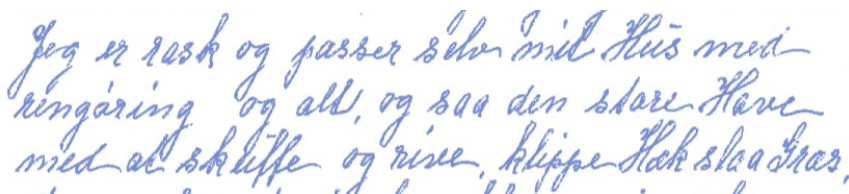 Jeg er rask og passer selv mit Hus med
rengøring og alt, og saa den store Have
med at skuffe og rive, klippe Hæk slaa Græs,